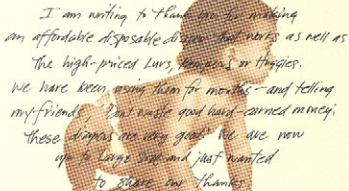 I am writing to thank you for making
an affordable disposable diaper that works as well as
the high-priced Luvs, Pampers or Huggies.
We have been using them for months - and telling
my friends, "Don't waste good hard-earned money;
these diapers are very good." We are now
up to Large size and just wanted
to share our thanks